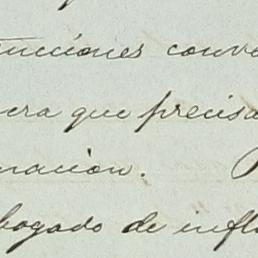 unciones conve
era que precisa
nación.
bogado de infl